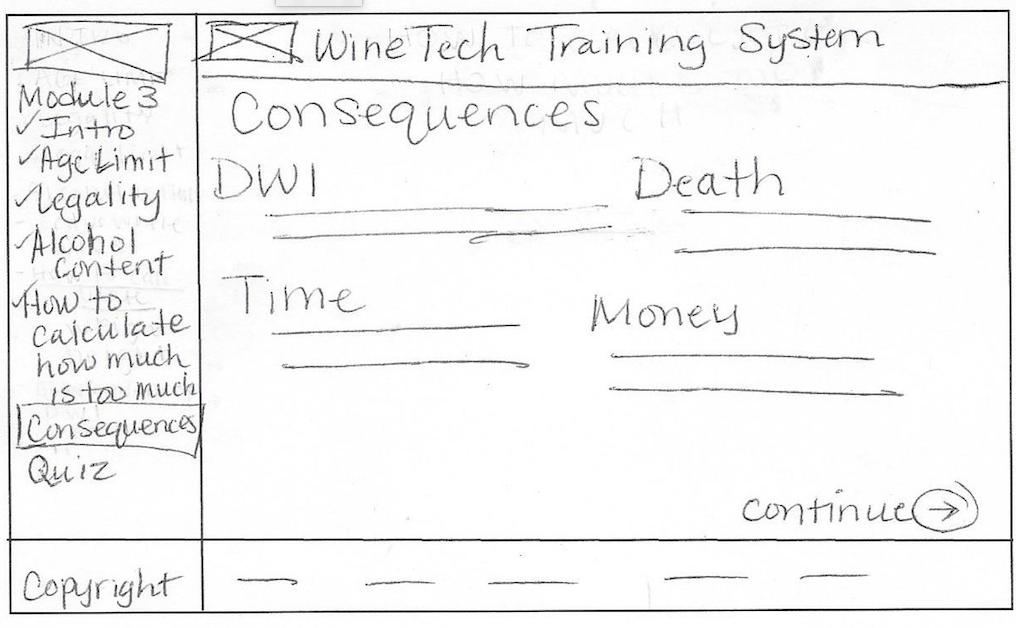 WineTech Training System
Module 3
✓Intro
✓Age Limit
✓Legality
✓Alcohol
Content
✓How to
calculate
how much
is too much
Consequences
Quiz
Consequences
DWI
Death
Time
Money
continue →
Copyright